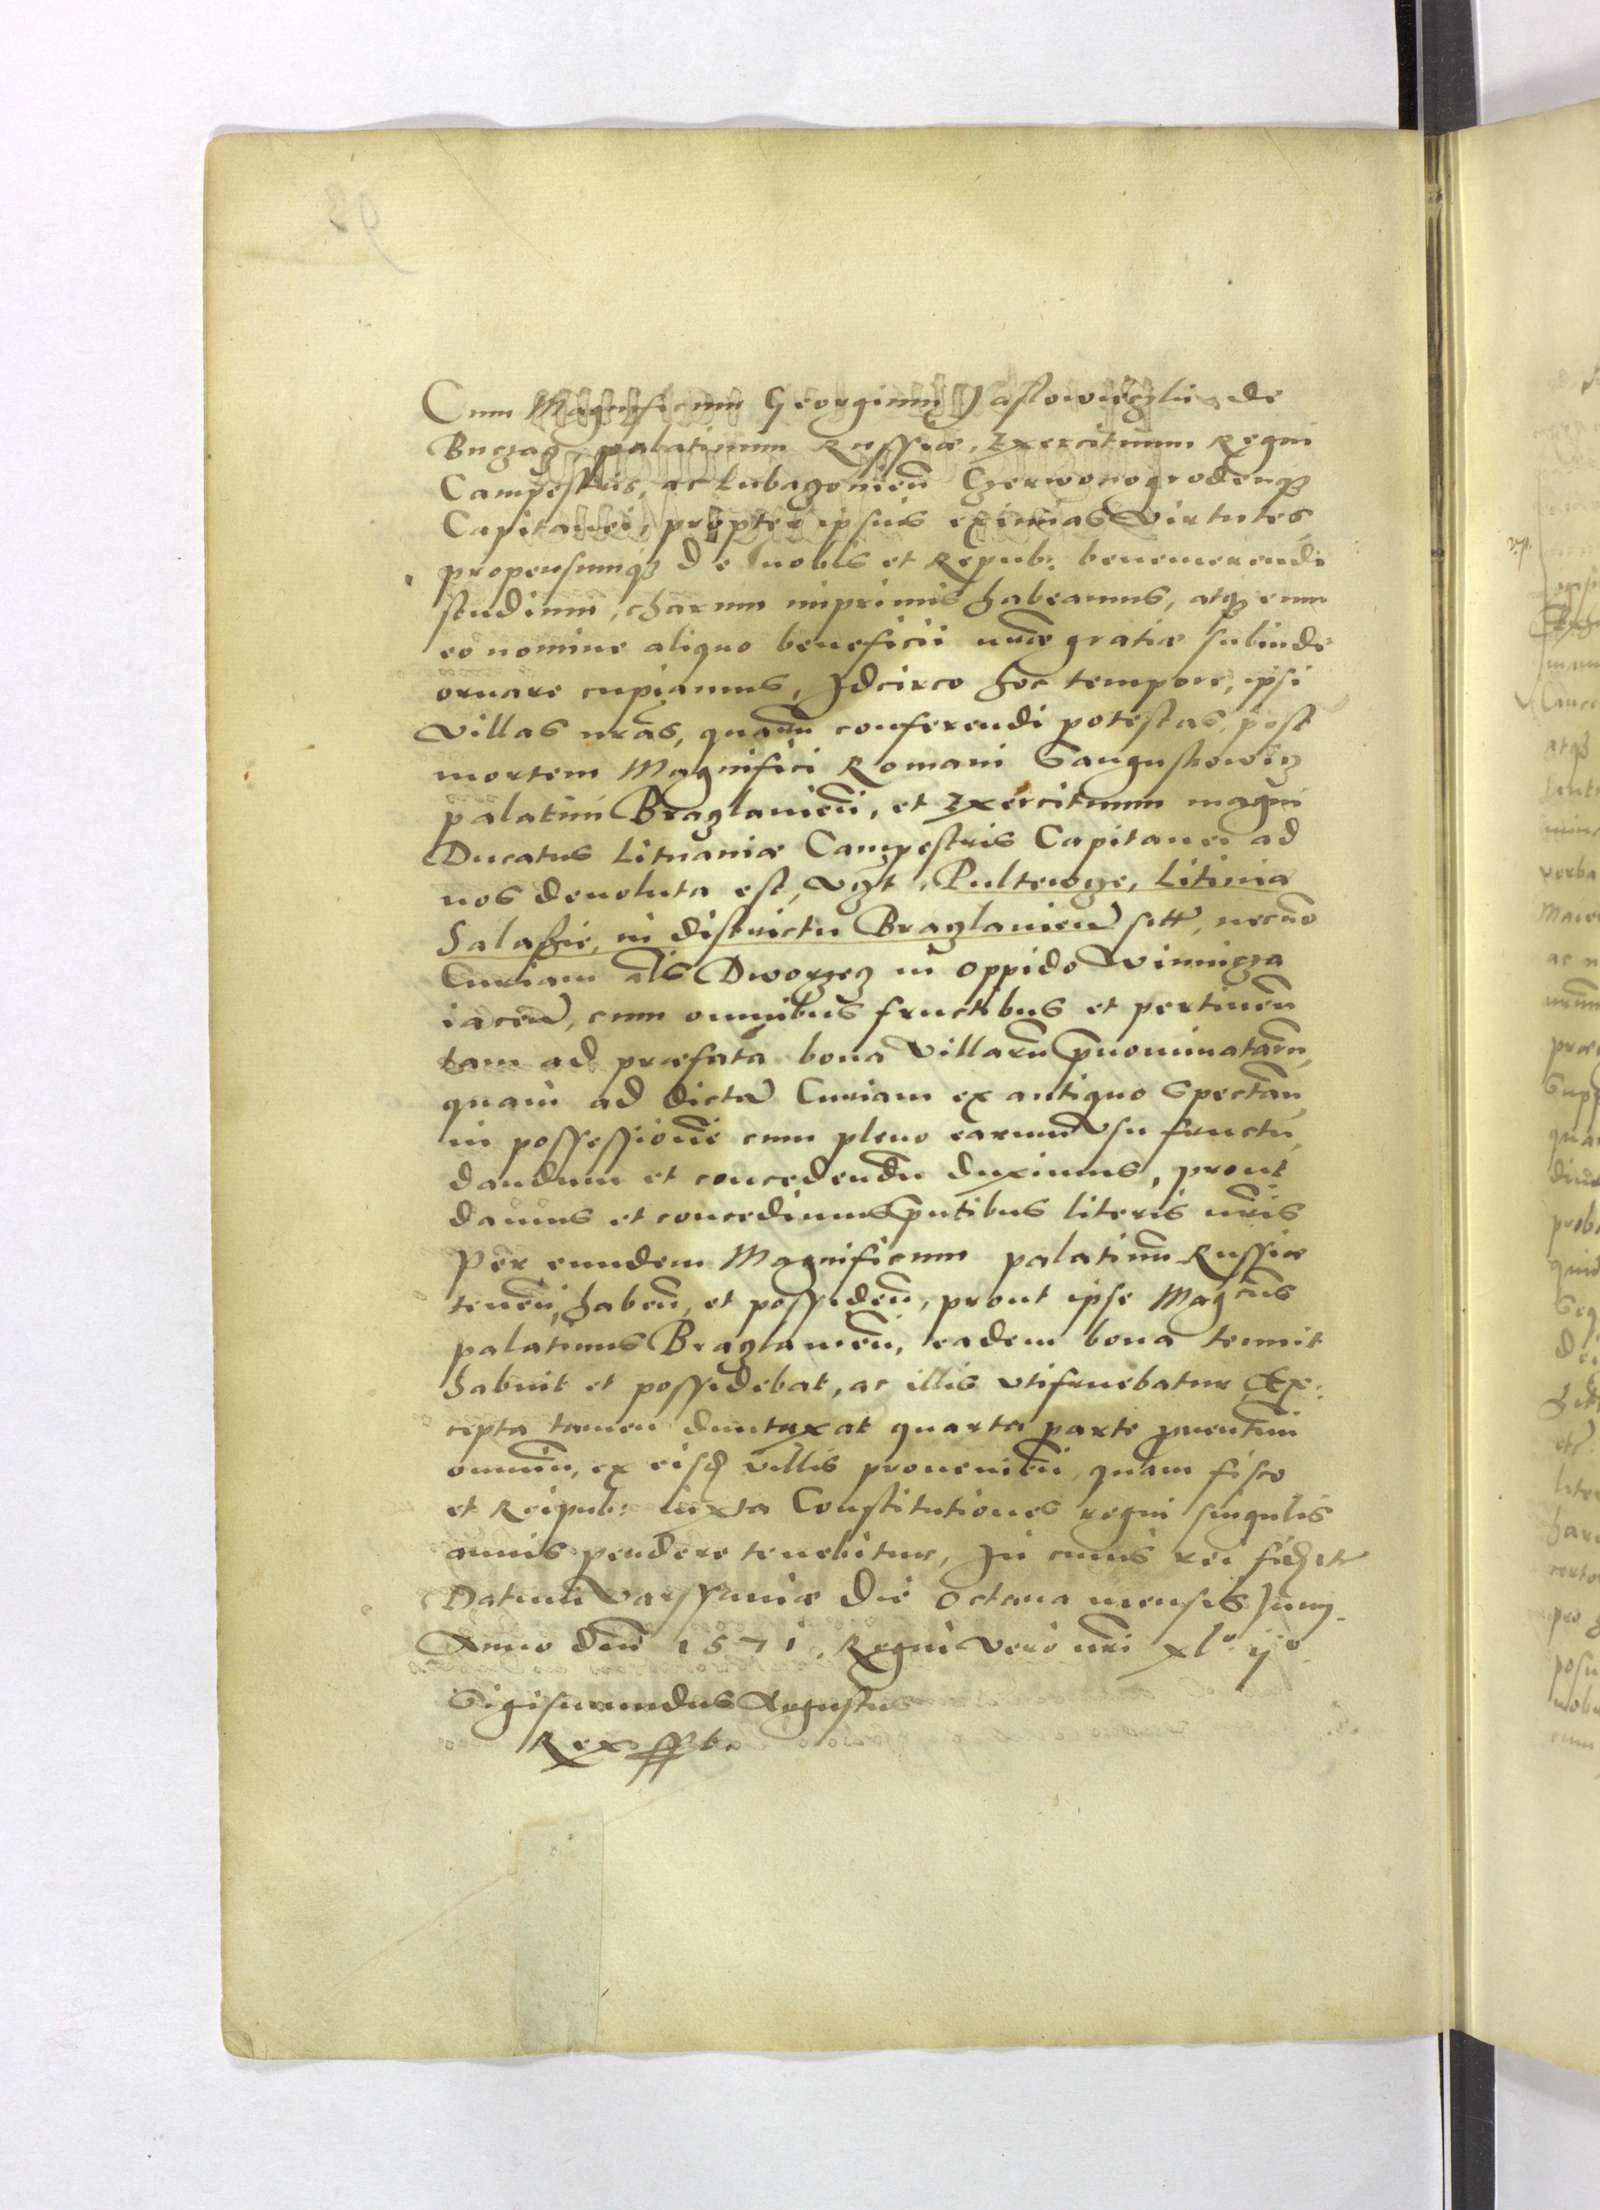 Cum Magnificum Georgium Jaslowieczki de
Buczacz, palatinum Russiæ, Exercituum Regni
Campestris, ac Lubaczonien̄ Czerwonogrodenq̄ꝫ
Capitanei, propter ipsius eximias Virtutes
propensumqꝫ de nobis et Repub: benemerendi
studium, charum imprimis habeamus, atqꝫ eum
eo nomine aliquo beneficii nr̄æ gratiæ subinde
ornare cupiamus, Idcirco hoc tempore, ipsi
Villas nr̄as, quar̄um conferendi potestas, post
mortem Magnifici Romani Sanguskowicz
palatini Braczlauien̄, et Exercituum magni
Ducatus Lituaniæ Campestris Capitanei ad
nos deuoluta est, vzt, Pultewcze, Litinia
Salassie, in districtu Braczlauien̄ sitt̄, necn̄o
Curiam al̄s Dworzecz in oppido Winnicza
iacen̄, cum omnibus fructibus et pertinen̄
tam ad præfata bona Villaru̅ p̄nominataru̅,
quam ad dictā Curiam ex antiquo Spectan̄
in possessionē cum pleno earum Vsu fructu,
dandum et concedendū duximus, prout
damus et concedimus p̄ntibus literis nr̄is
Per eundem Magnificum palatinū Russiæ
tenen̄, haben̄, et possiden̄, prout ipse Magcūs
palatinus Braczlauien̄, eadem bona tenuit
habuit et possidebat, ac illis vtifruebatur, Ex-
cepta tamen duntaxat quarta parte p̄uentuū
omniū, ex eisd̄ villis prouenien̄, quam fisco
et Reipub: iuxta Constitutiones regni singulis
annis pendere tenebitur, In cuius rei fid̄ etc
Datum Varssauiæ die octaua mensis Junij.
Anno Dn̄i 1571. Regni vero nr̄i xlº ijº
Sigismundus Augustus
Rex ssb.